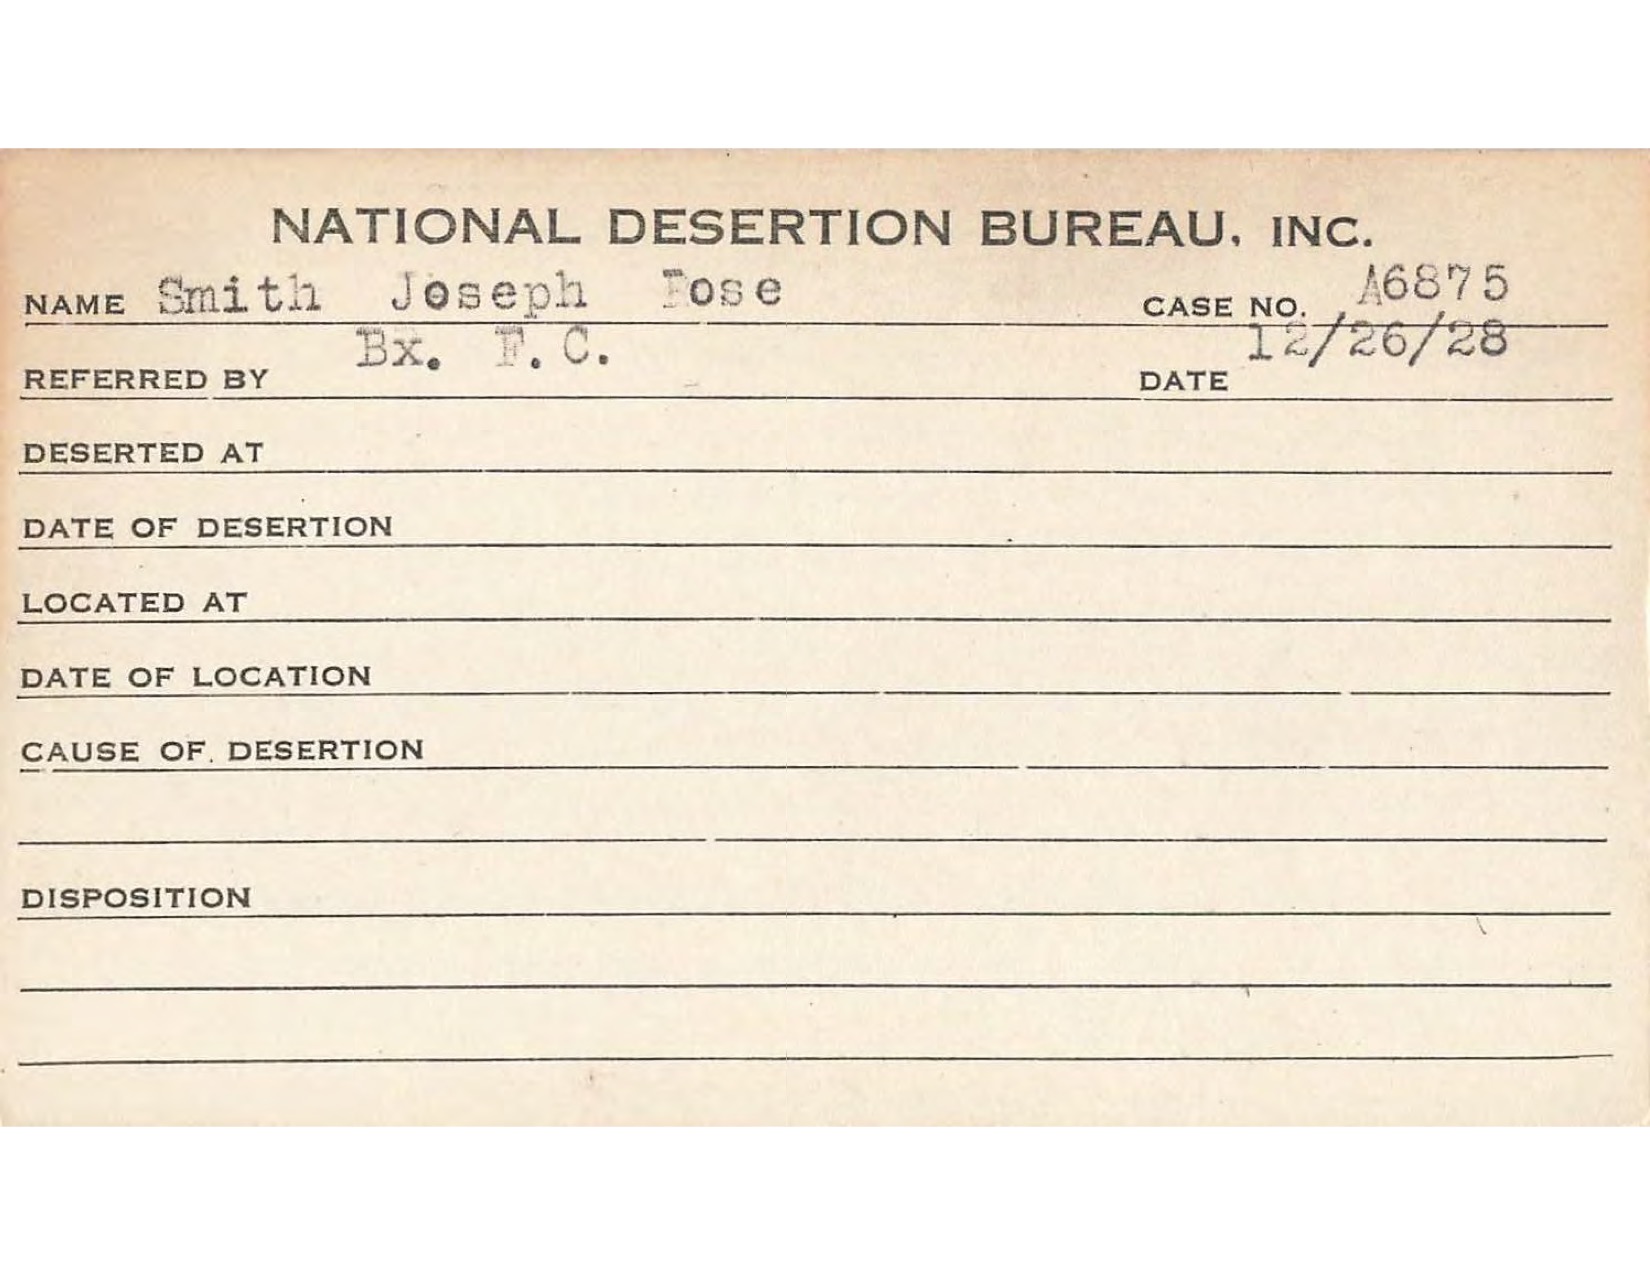 NATIONAL DESERTION BUREAU, INC.
NAME Smith Joseph Rose CASE NO. A6875
REFERRED BY Bx. F. C. DATE 12/26/28
DESERTED AT
DATE OF DESERTION
LOCATED AT
DATE OF LOCATION
CAUSE OF DESERTION
DISPOSITION